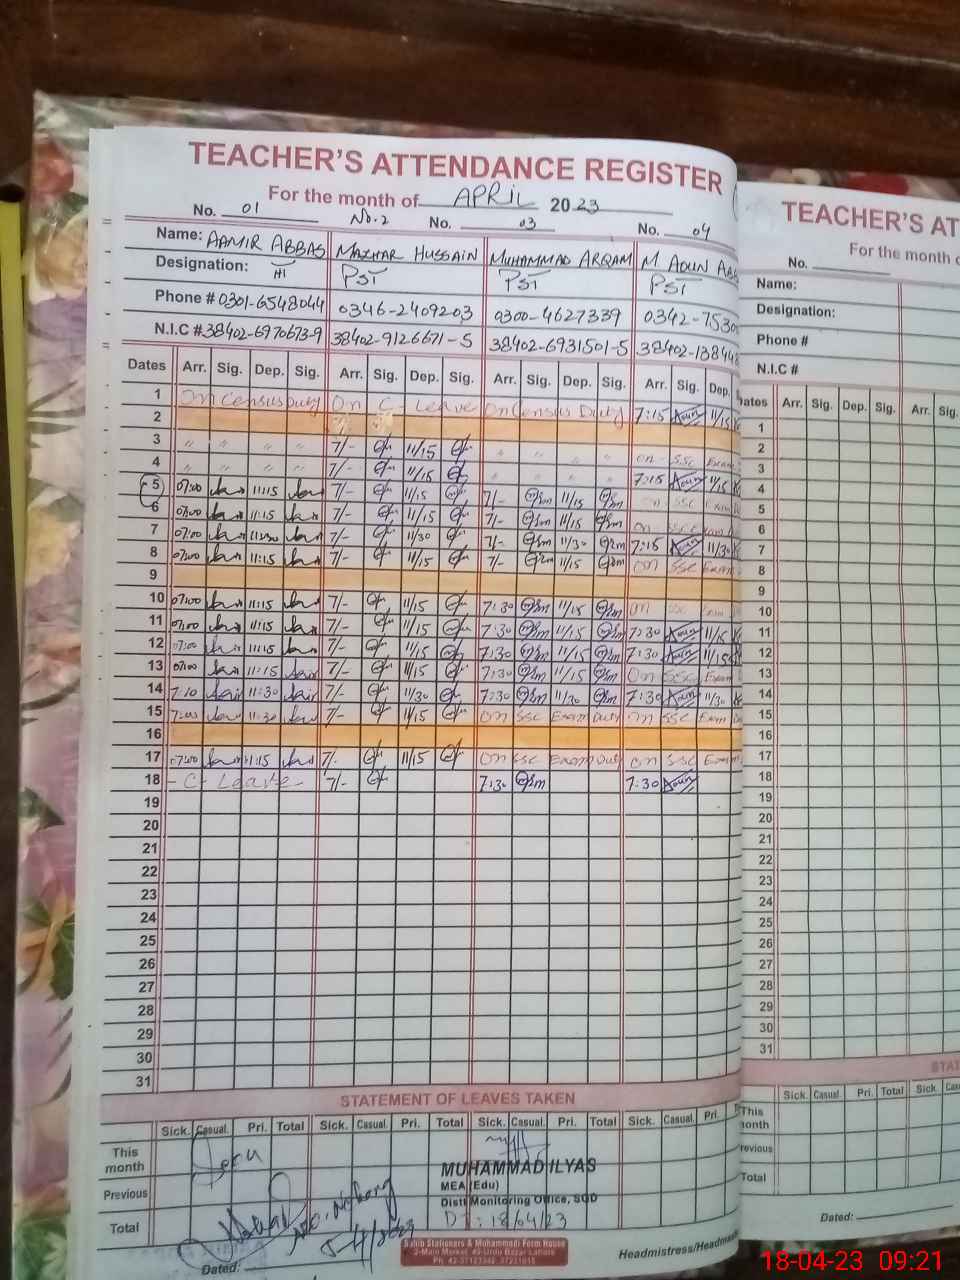 TEACHER'S ATTENDANCE REGISTER
For the month of APRIL 2023
No. 01 No. 2 No. 03 No. 04
Name: AAMIR ABBAS MAZHAR HUSSAIN MUHAMMAD ARQAM M AOUN ABB
Designation: PST PST PST
Phone # 0301-6548044 0346-2409203 0300-4627339 0342-7530
N.I.C # 38402-6970673-9 38402-9126671-5 38402-6931501-5 38402-13844
Dates Arr. Sig. Dep. Sig. Arr. Sig. Dep. Sig. Arr. Sig. Dep. Sig. Arr. Sig. Dep.
1 On Census Duty On C- Leave On Census Duty 7:15 Aoun 11/15
2
3 " " " 7/- 11/15 " " " " on - SSC Exam
4 " " " 7/- 11/15 " " " " 7:15 Aoun 11/15
5 07:00 11:15 7/- 11/15 7/- 11/15 on SSC Exam
6 07:00 11:15 7/- 11/15 7/- 11/15 on SSC Exam
7 07:00 7/- 11/30 7/- 11/30 7:15 Aoun 11/30
8 07:00 11:15 7/- 11/15 7/- 11/15 on SSC Exam
9
10 07:00 11:15 7/- 11/15 7:30 11/15 on SSC Exam
11 07:00 11:15 7/- 11/15 7:30 11/15 7:30 Aoun 11/15
12 07:00 11:15 7/- 11/15 7:30 11/15 7:30 Aoun 11/15
13 07:00 11:15 7/- 11/15 7:30 11/15 On SSC Exam
14 7:10 11:30 7/- 11/30 7:30 11/30 7:30 Aoun 11/30
15 7:00 11:30 7/- 11/15 On SSC Exam Duty on SSC Exam
16
17 07:00 11:15 7/- 11/15 On SSC Exam Duty on SSC Exam
18 - C- Leave - 7/- 7:30 7:30 Aoun
19
20
21
22
23
24
25
26
27
28
29
30
31
STATEMENT OF LEAVES TAKEN
Sick. Casual. Pri. Total Sick. Casual. Pri. Total Sick. Casual. Pri. Total Sick. Casual. Pri.
This month
Previous
Total
MUHAMMAD ILYAS
MEA (Edu)
Distt Monitoring Office, SGD
DT: 18/04/23
5-4/2023
Dated:
Sahib Stationers & Mohammadi Form House
2-Main Market, 40-Urdu Bazar Lahore
Headmistress/Headmas
TEACHER'S AT
For the month o
No.
Name:
Designation:
Phone #
N.I.C #
Dates Arr. Sig. Dep. Sig. Arr. Sig.
1
2
3
4
5
6
7
8
9
10
11
12
13
14
15
16
17
18
19
20
21
22
23
24
25
26
27
28
29
30
31
STAT
Sick. Casual. Pri. Total Sick. Casual.
This month
Previous
Total
Dated:
18-04-23 09:21